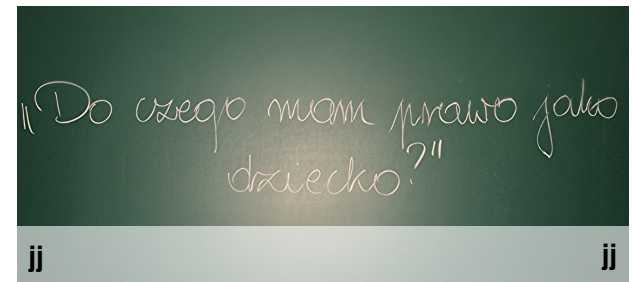 „Do czego mam prawo jako
dziecko?"
jj jj